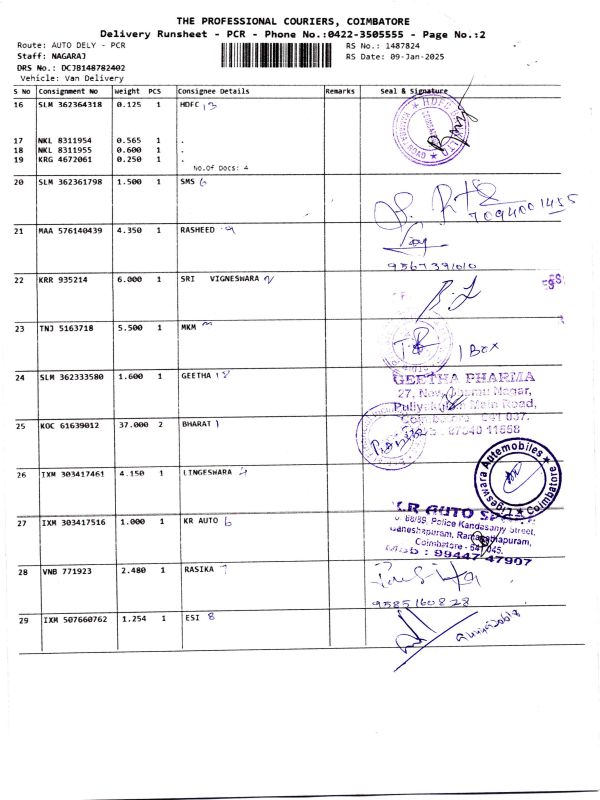 THE PROFESSIONAL COURIERS, COIMBATORE
Delivery Runsheet - PCR - Phone No.:0422-3505555 - Page No.:2
Route: AUTO DELY - PCR RS No.: 1487824
Staff: NAGARAJ RS Date: 09-Jan-2025
DRS No.: DCJB148782402
Vehicle: Van Delivery
S No Consignment No Weight PCS Consignee Details Remarks Seal & Signature
16 SLM 362364318 0.125 1 HDFC 13
17 NKL 8311954 0.565 1 .
18 NKL 8311955 0.600 1 .
19 KRG 4672061 0.250 1 .
No.Of Docs: 4
20 SLM 362361798 1.500 1 SMS 6
7094001455
21 MAA 576140439 4.350 1 RASHEED
9567391010
22 KRR 935214 6.000 1 SRI VIGNESHWARA
23 TNJ 5163718 5.500 1 MKM
1 Box
24 SLM 362333580 1.600 1 GEETHA 18
GEETHA PHARMA
27, Nagar,
Main Road,
Coimbatore - 641 037.
25 KOC 61639012 37.000 2 BHARAT 1
26 IXM 303417461 4.150 1 LINGESWARA 4
Automobiles
Coimbatore
27 IXM 303417516 1.000 1 KR AUTO 6
KR AUTO
88/89, Police Kandasamy Street,
Ganeshapuram, Ramanathapuram,
Coimbatore - 641 045.
Mob : 99447 47907
28 VNB 771923 2.480 1 RASIKA 7
9585160828
29 IXM 507660762 1.254 1 ESI 8